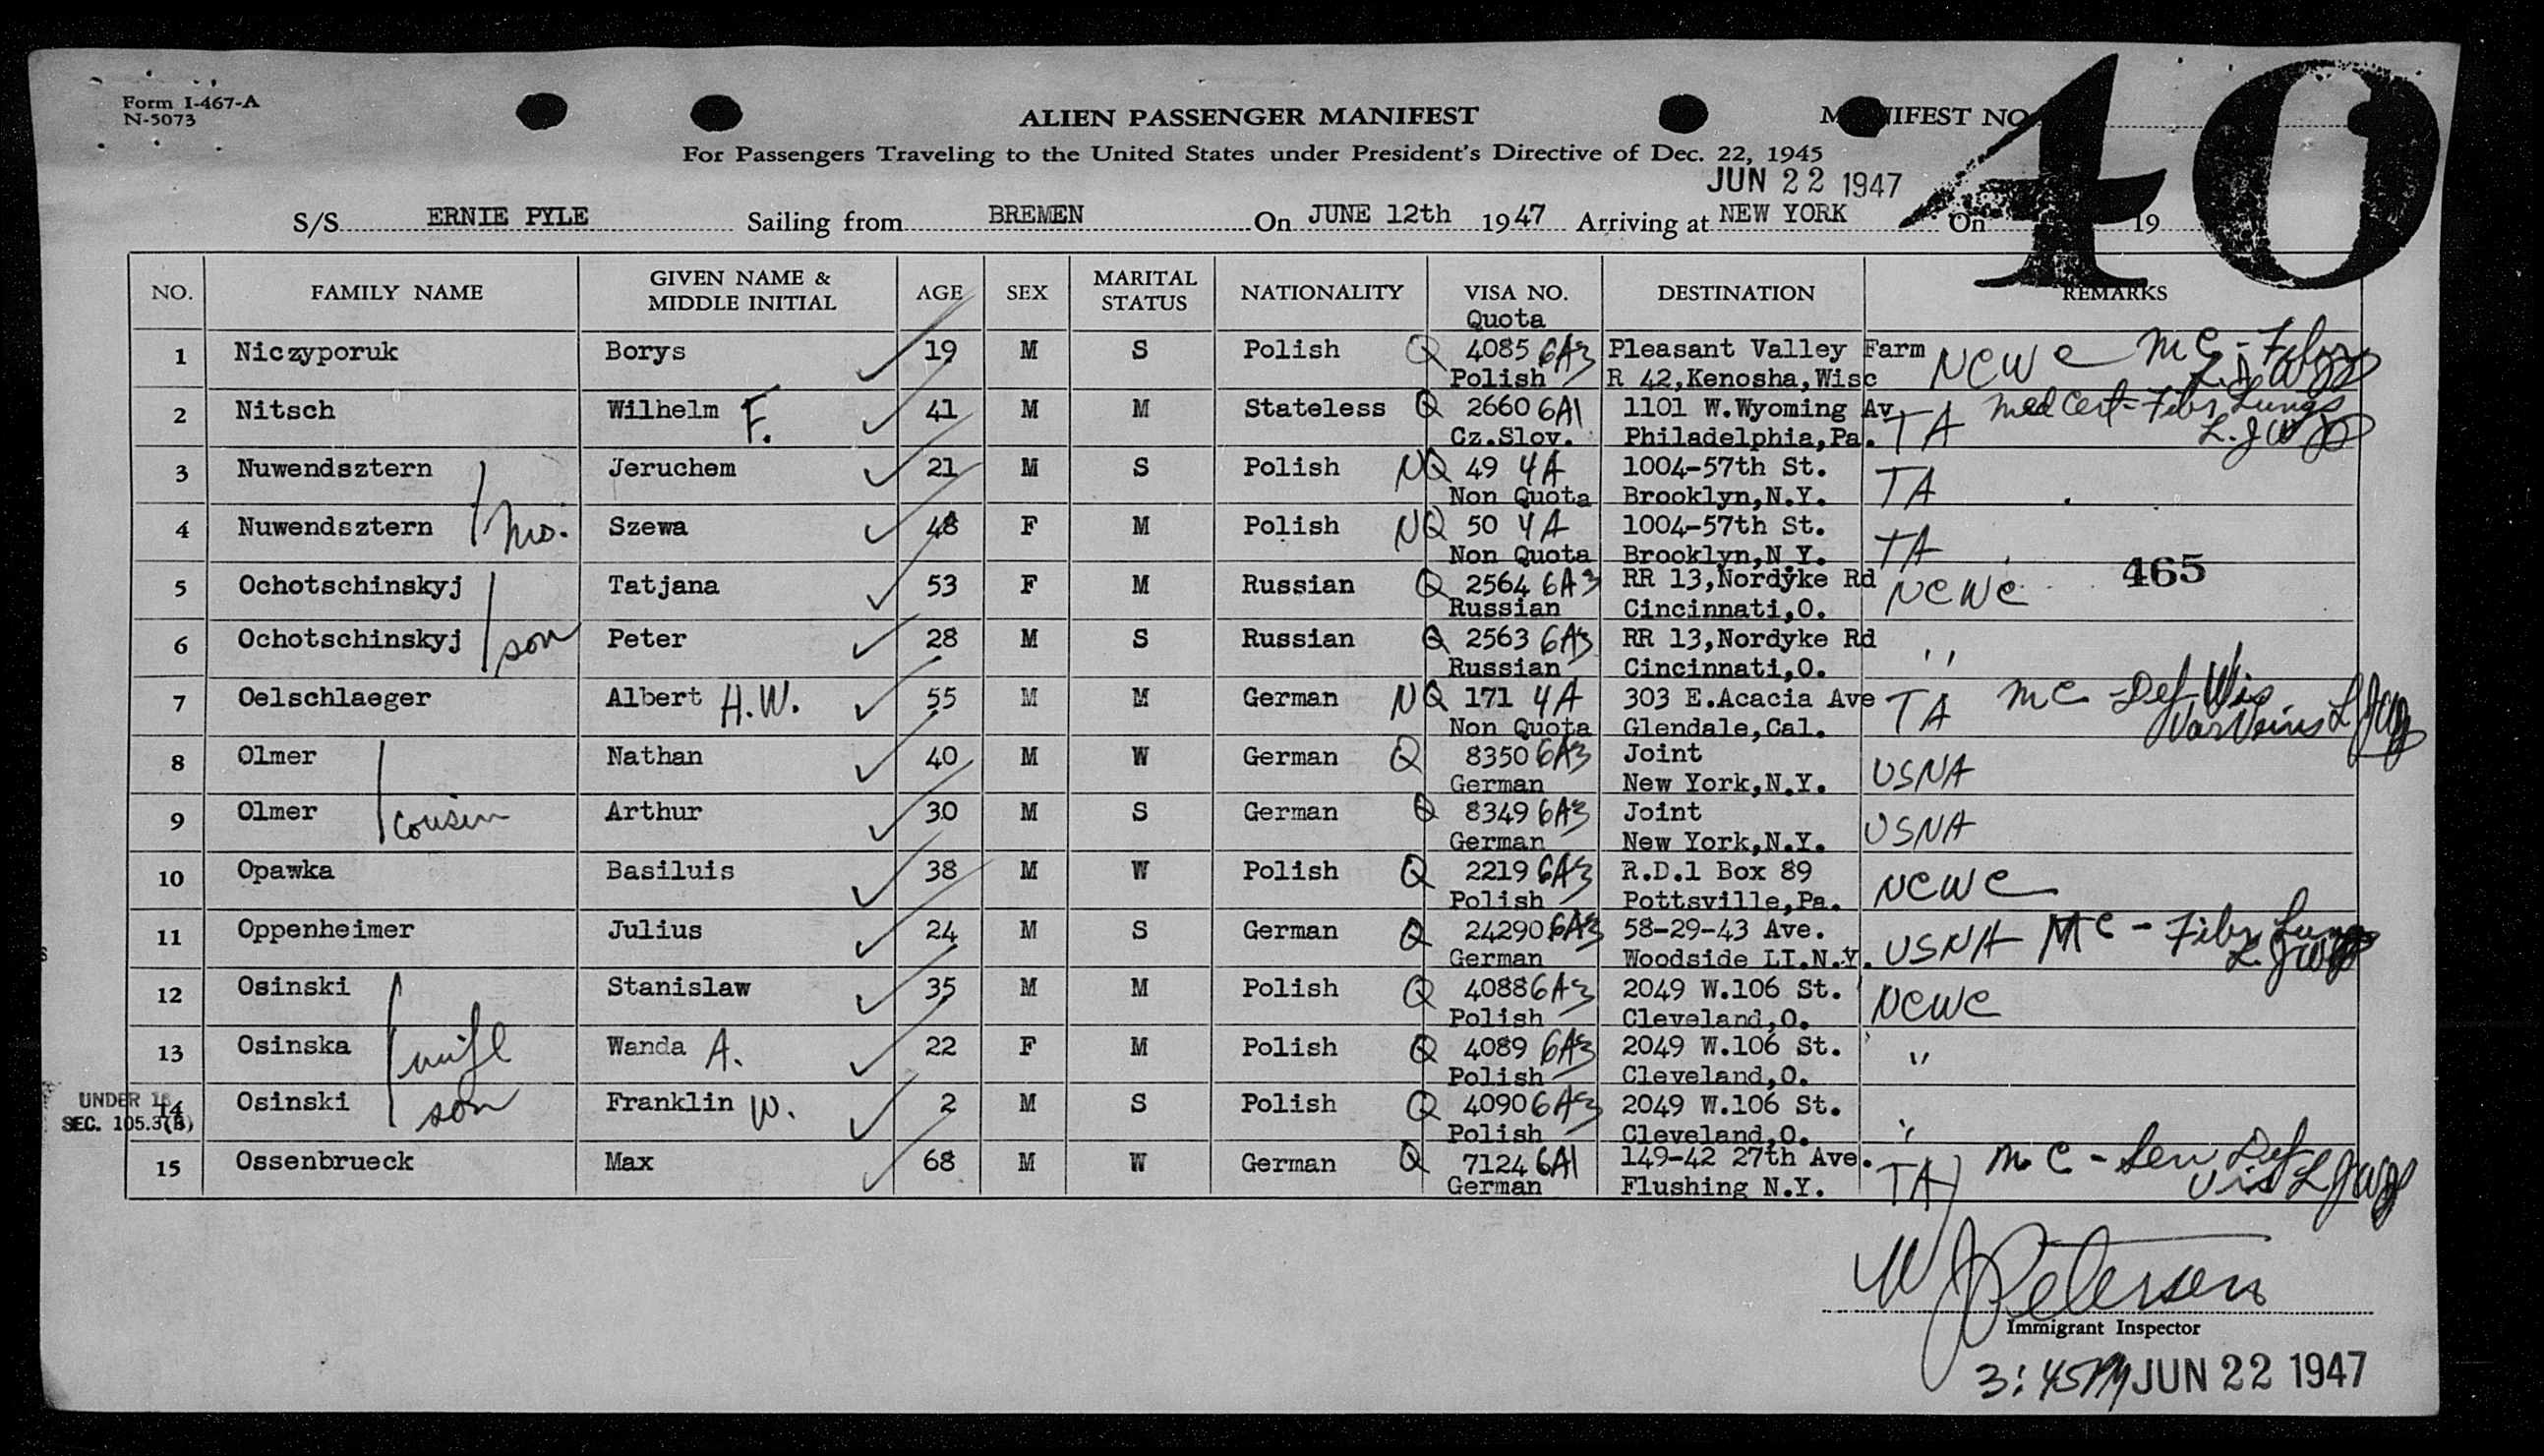 Form I-467-A
N-5073
ALIEN PASSENGER MANIFEST
MANIFEST NO. 40
For Passengers Traveling to the United States under President's Directive of Dec. 22, 1945
JUN 22 1947
S/S ERNIE PYLE Sailing from BREMEN On JUNE 12th 1947 Arriving at NEW YORK On 19
NO. FAMILY NAME GIVEN NAME & MIDDLE INITIAL AGE SEX MARITAL STATUS NATIONALITY VISA NO. DESTINATION REMARKS
Quota
1 Niczyporuk Borys 19 M S Polish Q 4085 6A3 Pleasant Valley Farm NCWC MC - Fibr
Polish R 42,Kenosha,Wisc
2 Nitsch Wilhelm F. 41 M M Stateless Q 2660 6A1 1101 W.Wyoming Av TA Med Cert - Fibr Lungs
Cz.Slov. Philadelphia,Pa.
3 Nuwendsztern Jeruchem 21 M S Polish NQ 49 4A 1004-57th St. TA
Non Quota Brooklyn,N.Y.
4 Nuwendsztern mo. Szewa 48 F M Polish NQ 50 4A 1004-57th St. TA
Non Quota Brooklyn,N.Y.
465
5 Ochotschinskyj Tatjana 53 F M Russian Q 2564 6A3 RR 13,Nordyke Rd NCWC
Russian Cincinnati,O.
6 Ochotschinskyj son Peter 28 M S Russian Q 2563 6A3 RR 13,Nordyke Rd ''
Russian Cincinnati,O.
7 Oelschlaeger Albert H.W. 55 M M German NQ 171 4A 303 E.Acacia Ave TA MC - Def Vis
Non Quota Glendale,Cal. Var Veins
8 Olmer Nathan 40 M W German Q 8350 6A3 Joint USNA
German New York,N.Y.
9 Olmer cousin Arthur 30 M S German Q 8349 6A3 Joint USNA
German New York,N.Y.
10 Opawka Basiluis 38 M W Polish Q 2219 6A3 R.D.1 Box 89 NCWC
Polish Pottsville,Pa.
11 Oppenheimer Julius 24 M S German Q 24290 6A3 58-29-43 Ave. USNA MC - Fibr Lungs
German Woodside LI.N.Y.
12 Osinski Stanislaw 35 M M Polish Q 4088 6A3 2049 W.106 St. NCWC
Polish Cleveland,O.
13 Osinska wife Wanda A. 22 F M Polish Q 4089 6A3 2049 W.106 St. ''
Polish Cleveland,O.
UNDER 16
SEC. 105.3(B)
14 Osinski son Franklin W. 2 M S Polish Q 4090 6A3 2049 W.106 St. ''
Polish Cleveland,O.
15 Ossenbrueck Max 68 M W German Q 7124 6A1 149-42 27th Ave. TA MC - Sen Def
German Flushing N.Y. Vis
W J Petersen
Immigrant Inspector
3:45PM JUN 22 1947